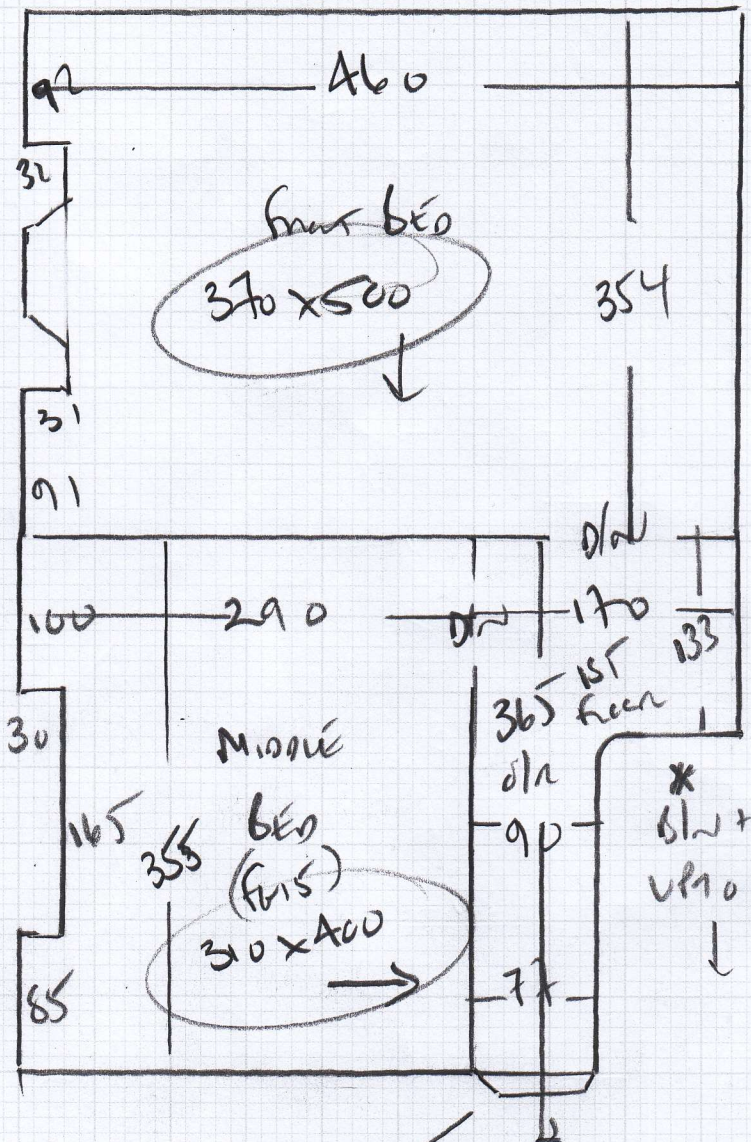 92
460
32
Front BED
370 x 500
354
31
91
D/W
100
290
D/W
170
133
365
1ST
Floor
30
MIDDLE
BED
165
355
90
310 x 400
77
85